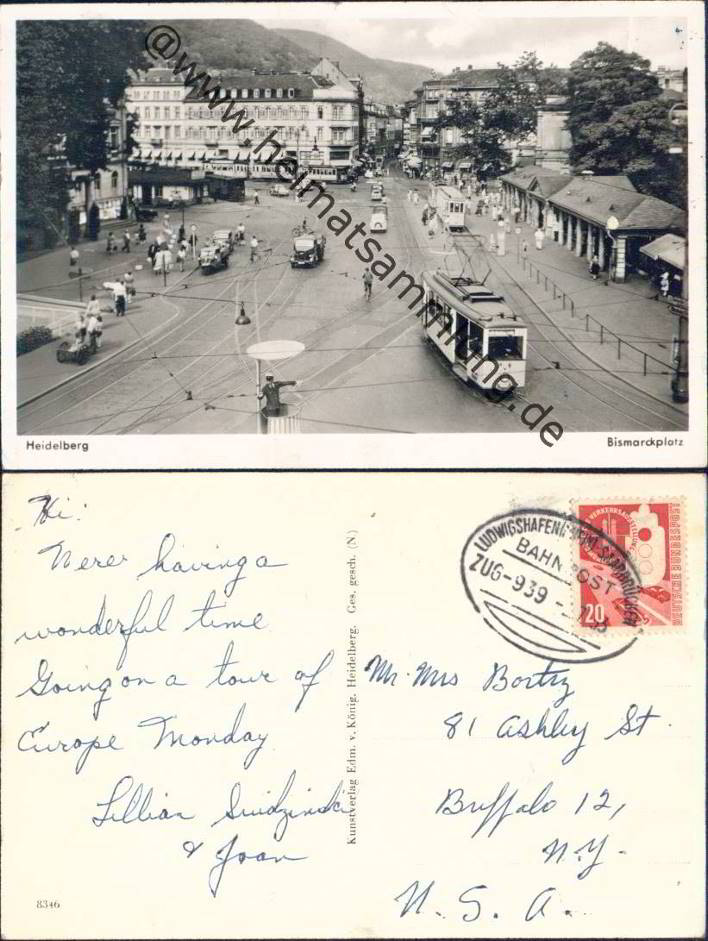 @www.heimatsammlung.de
Heidelberg
Bismarckplatz
Hi:
Were having a
wonderful time.
Going on a tour of
Europe Monday
Lillian
& Joan
8346
Kunstverlag Edm. v. König, Heidelberg. Ges. gesch. (N)
LUDWIGSHAFEN
BAHNPOST
ZUG-939
VERKEHRSAUSSTELLUNG
20
DEUTSCHE BUNDESPOST
Mr. Mrs Bortz
81 Ashley St.
Buffalo 12,
N.Y.
U. S. A.